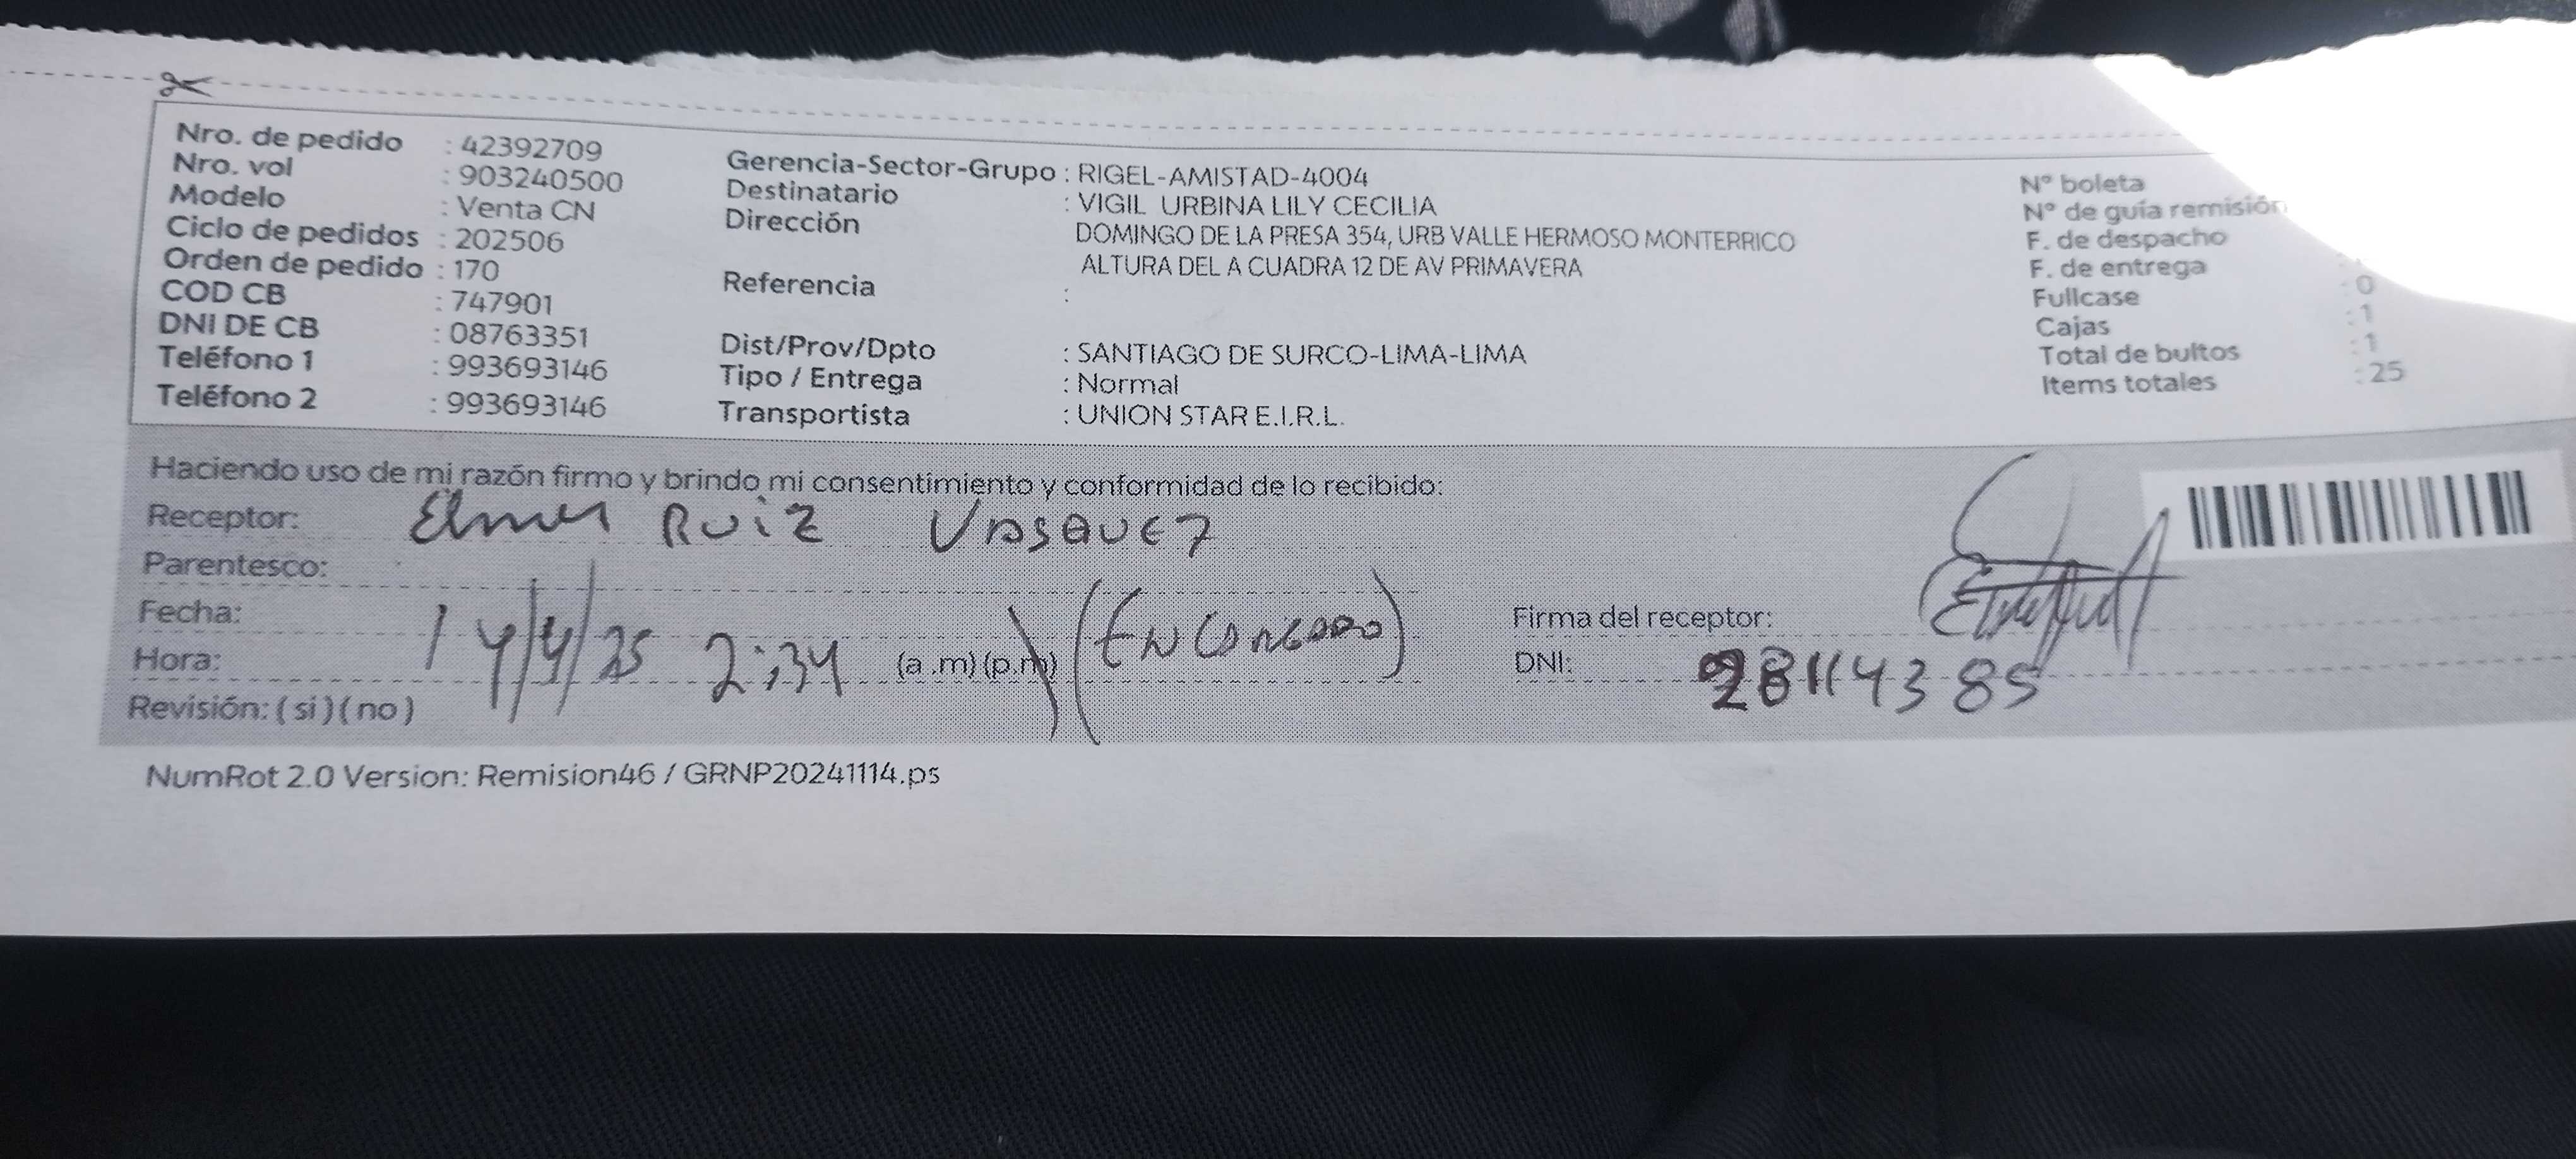 Nro. de pedido : 42392709
Nro. vol : 903240500
Modelo : Venta CN
Ciclo de pedidos : 202506
Orden de pedido : 170
COD CB : 747901
DNI DE CB : 08763351
Teléfono 1 : 993693146
Teléfono 2 : 993693146
Gerencia-Sector-Grupo : RIGEL-AMISTAD-4004
Destinatario : VIGIL URBINA LILY CECILIA
Dirección DOMINGO DE LA PRESA 354, URB VALLE HERMOSO MONTERRICO
ALTURA DEL A CUADRA 12 DE AV PRIMAVERA
Referencia :
Dist/Prov/Dpto : SANTIAGO DE SURCO-LIMA-LIMA
Tipo / Entrega : Normal
Transportista : UNION STAR E.I.R.L.
N° boleta
N° de guía remisión
F. de despacho
F. de entrega
Fullcase : 0
Cajas : 1
Total de bultos : 1
Items totales : 25
Haciendo uso de mi razón firmo y brindo mi consentimiento y conformidad de lo recibido:
Receptor: Elmer RUIZ VASQUEZ
Parentesco:
Fecha: 14/4/25
Hora: 2:34 (a.m)(p.m) (ENCARGADO)
Revisión: (si)(no)
Firma del receptor:
DNI: 28114385
NumRot 2.0 Version: Remision46 / GRNP20241114.ps